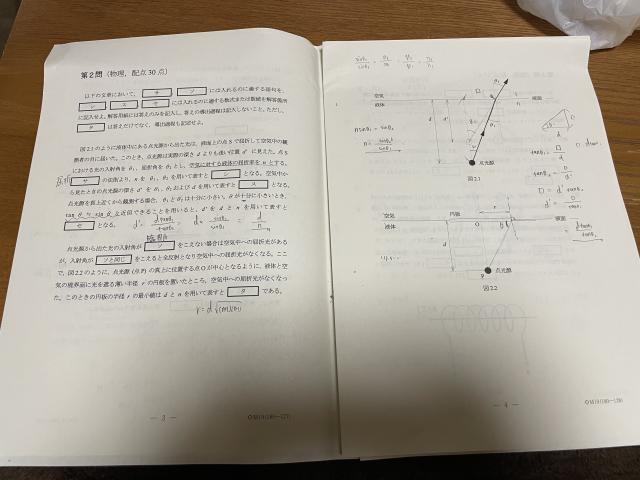 第2問 (物理,配点30点)
以下の文章において, サ ソ には入れるのに適する語句を,
シ ス セ には入れるのに適する数式または数値を解答箇所
に記入せよ。解答用紙には答えのみを記入し,答えの導出過程は記入しないこと。ただし,
タ は答えだけでなく,導出過程も記述せよ。
図2.1のように液体中にある点光源から出た光は,液面上の点Sで屈折して空気中の観
測者の目に届いた。このとき,点光源は実際の深さdより浅い位置d'に見えた。点S
における光の入射角をθ₁,屈折角をθ₂とし,空気に対する液体の屈折率をnとする。
屈折 サ の法則より,nをθ₁,θ₂を用いて表すと シ となる。空気中か
ら見たときの点光源の深さd'を,θ₁,θ₂およびdを用いて表すと ス となる。
点光源を真上近くから観測する場合,θ₁とθ₂は十分に小さい。θが十分に小さいとき,
tanθ≒sinθと近似できることを用いると,d'をdとnを用いて表すと
セ となる。 d' =
点光源から出た光の入射角が ソ をこえない場合は空気中への屈折光がある
が,入射角が ソと同じ をこえると全反射となり空気中への屈折光がなくなる。ここ
で,図2.2のように,点光源(点P)の真上に位置する点Oが中心となるように,液体と空
気の境界面に光を遮る薄い半径rの円板を置いたところ,空気中への屈折光がなくなっ
た。このときの円板の半径rの最小値はdとnを用いて表すと タ である。
— 3 —
空気
液体
液面
d
d'
点光源
図2.1
n sinθ₁ = sinθ₂
空気
円板
液体
液面
r
O
d
P
点光源
図2.2
— 4 —